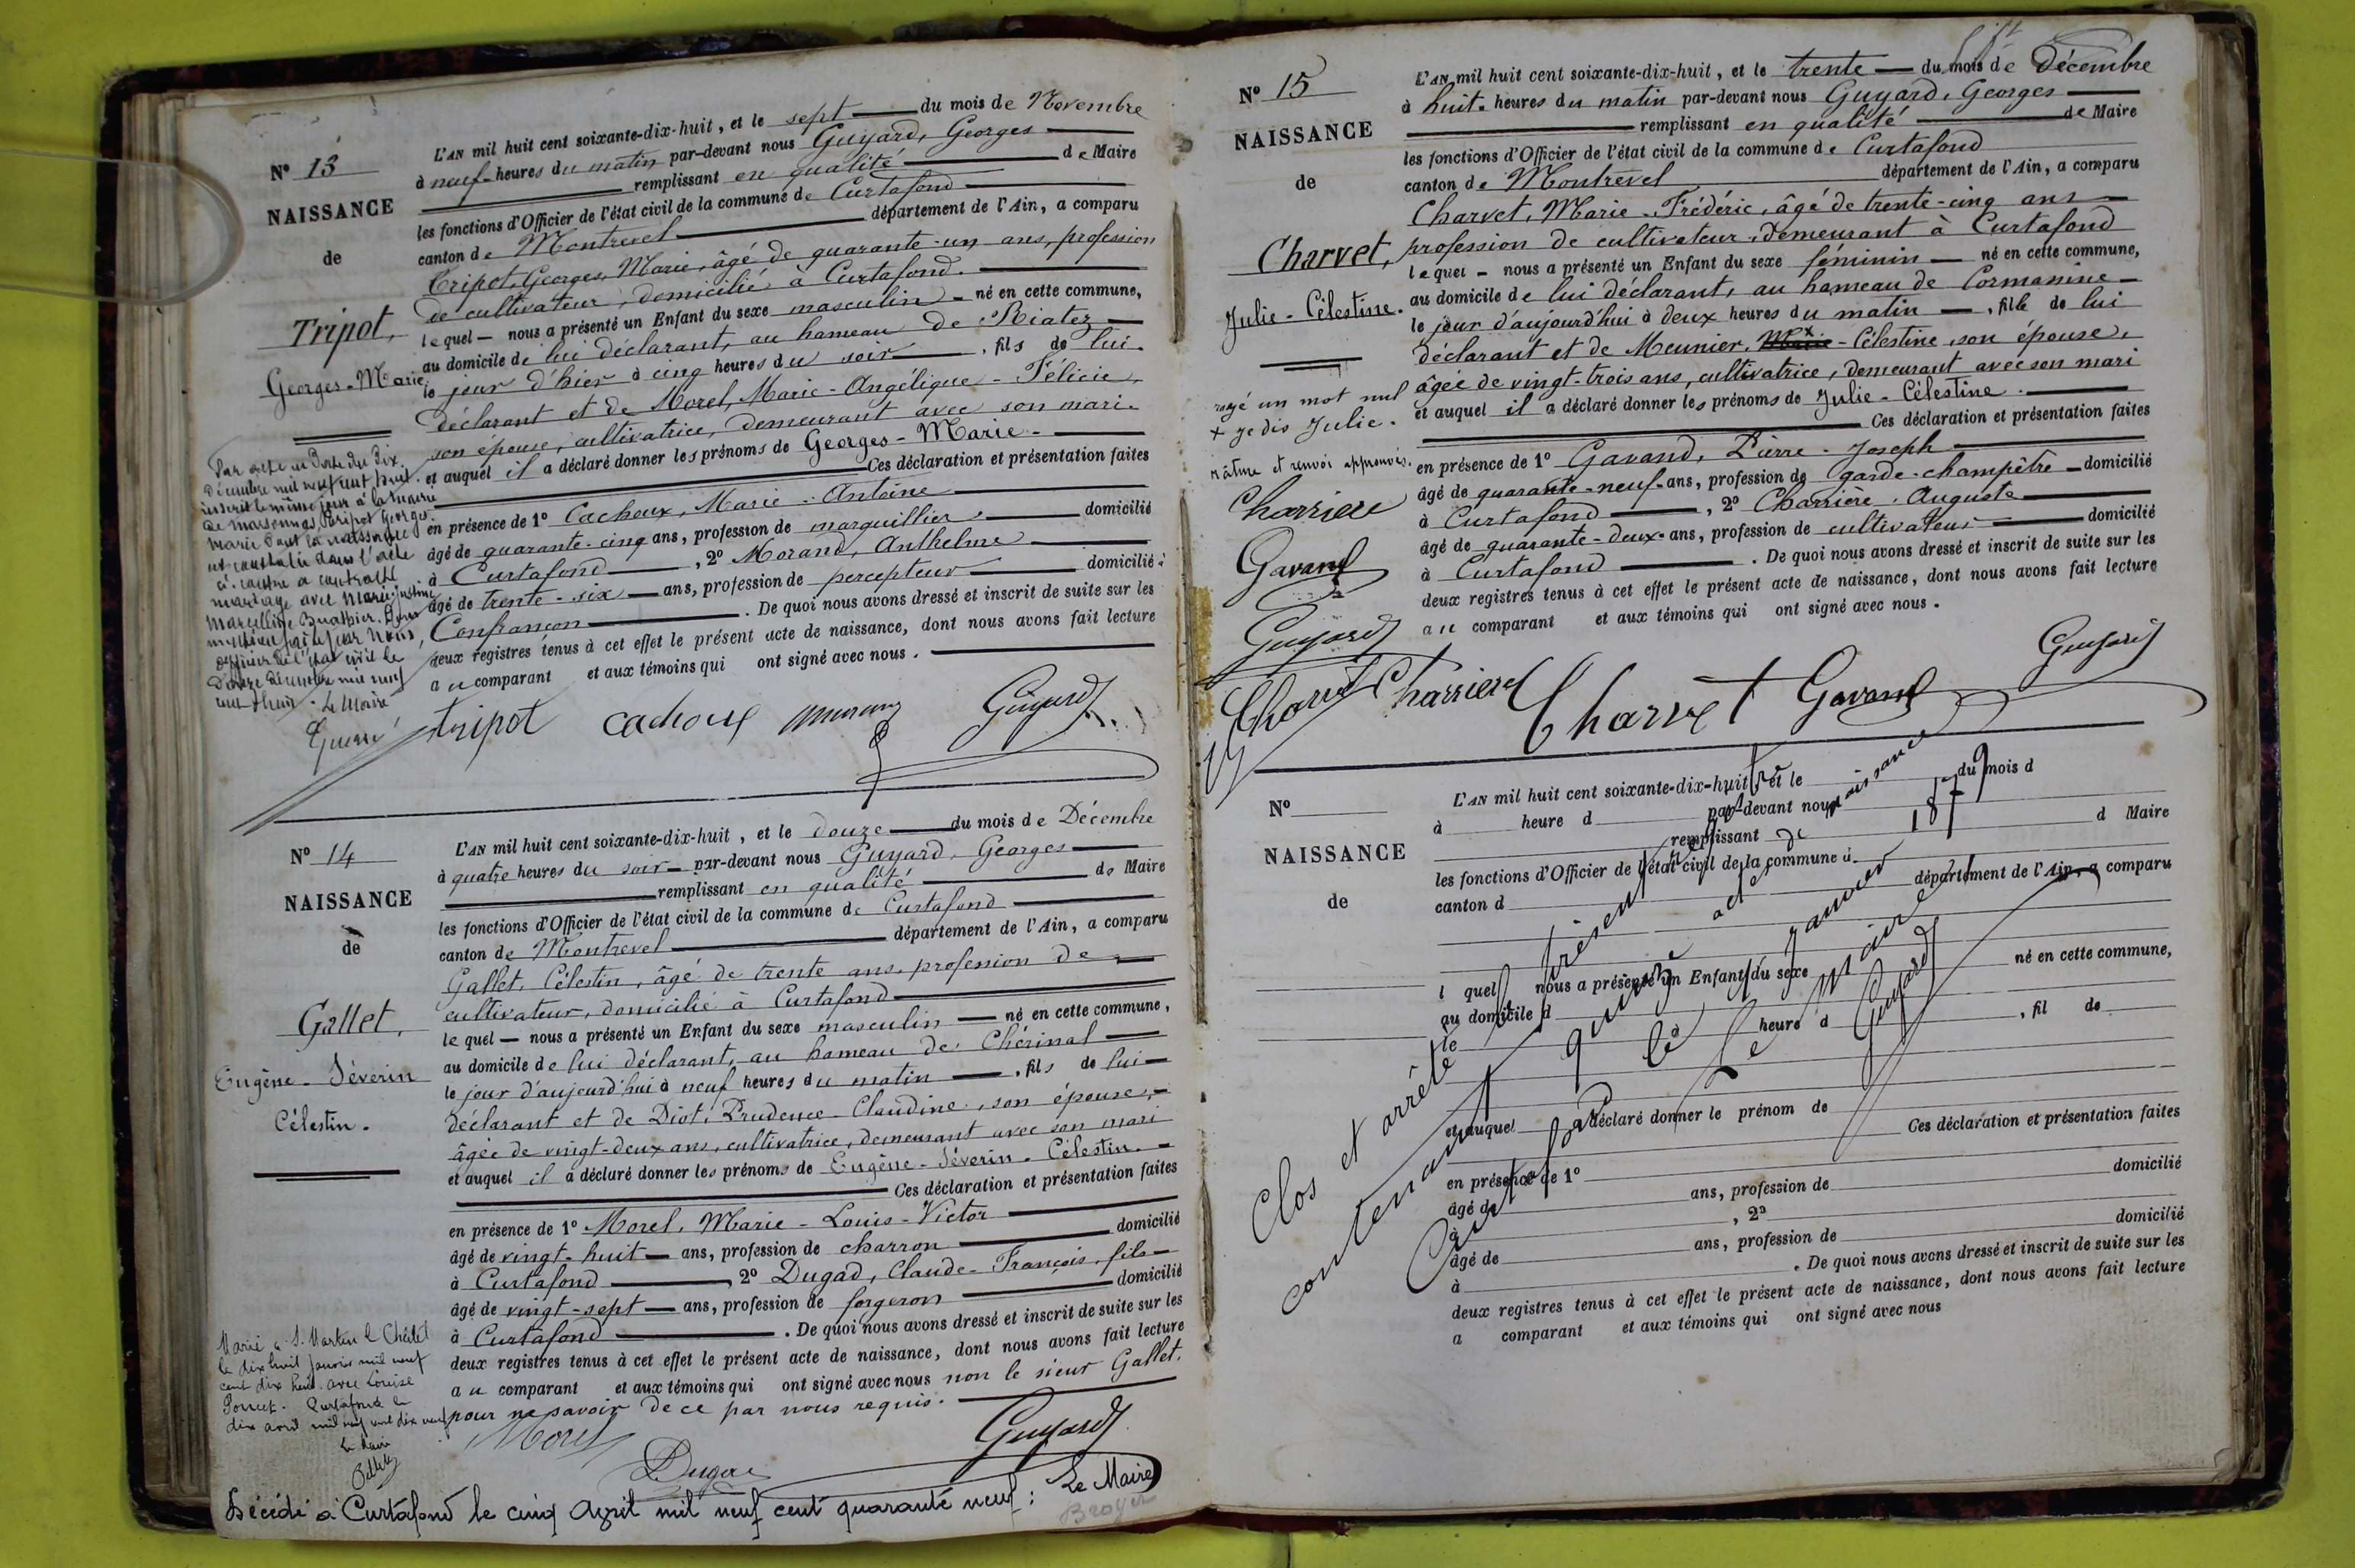 N° 13
NAISSANCE
de
Tripot,
Georges-Marie
L'AN mil huit cent soixante-dix-huit, et le sept du mois de Novembre
à neuf heures du matin par-devant nous Guyard, Georges
remplissant en qualité de Maire
les fonctions d'Officier de l'état civil de la commune de Curtafond
canton de Montrevel département de l'Ain, a comparu
Tripot, Georges, Marie, âgé de quarante-un ans, profession
de cultivateur, domicilié à Curtafond.
lequel nous a présenté un Enfant du sexe masculin né en cette commune,
au domicile de lui déclarant, au hameau de Riatez
le jour d'hier à cinq heures du soir, fils de lui
déclarant et de Morel, Marie-Angélique-Félicie,
son épouse, cultivatrice, demeurant avec son mari.
et auquel il a déclaré donner les prénoms de Georges-Marie.
Ces déclaration et présentation faites
en présence de 1° Cachoux, Marie-Antoine
âgé de quarante-cinq ans, profession de marguillier, domicilié
à Curtafond, 2° Morand, Anthelme
âgé de trente-six ans, profession de percepteur domicilié à
Confrançon. De quoi nous avons dressé et inscrit de suite sur les
deux registres tenus à cet effet le présent acte de naissance, dont nous avons fait lecture
au comparant et aux témoins qui ont signé avec nous.
Par acte en date du dix
décembre mil neuf cent huit
inscrit le même jour à la mairie
de Marsonnas, Tripot Georges
Marie dont la naissance
est constatée dans l'acte
ci-contre a contracté
mariage avec Marie Justine
Marcelline Buathier. Dont
mention faite par Nous,
officier de l'état civil le
douze décembre mil neuf
cent huit. Le Maire
tripot cachoux Morand Guyard
N° 14
NAISSANCE
de
Gallet,
Eugène-Séverin
Célestin.
L'AN mil huit cent soixante-dix-huit, et le douze du mois de Décembre
à quatre heures du soir par-devant nous Guyard, Georges
remplissant en qualité de Maire
les fonctions d'Officier de l'état civil de la commune de Curtafond
canton de Montrevel département de l'Ain, a comparu
Gallet, Célestin, âgé de trente ans, profession de
cultivateur, domicilié à Curtafond
lequel nous a présenté un Enfant du sexe masculin né en cette commune,
au domicile de lui déclarant, au hameau de Chérinal
le jour d'aujourd'hui à neuf heures du matin, fils de lui
déclarant et de Diot, Prudence-Claudine, son épouse,
âgée de vingt-deux ans, cultivatrice, demeurant avec son mari
et auquel il a déclaré donner les prénoms de Eugène-Séverin-Célestin.
Ces déclaration et présentation faites
en présence de 1° Morel, Marie-Louis-Victor
âgé de vingt-huit ans, profession de charron domicilié
à Curtafond, 2° Dugad, Claude-François, fils
âgé de vingt-sept ans, profession de forgeron domicilié
à Curtafond. De quoi nous avons dressé et inscrit de suite sur les
deux registres tenus à cet effet le présent acte de naissance, dont nous avons fait lecture
au comparant et aux témoins qui ont signé avec nous non le sieur Gallet,
pour ne savoir de ce par nous requis.
Marié à St Martin le Châtel
le dix huit janvier mil neuf
cent dix neuf avec Louise
Curtafond le
dix avril mil neuf cent dix neuf
Le Maire
Morel Dugad Guyard
Décédé à Curtafond le cinq Avril mil neuf cent quarante neuf : Le Maire
Broyer
N° 15
NAISSANCE
de
Charvet,
Julie-Célestine.
L'AN mil huit cent soixante-dix-huit, et le trente du mois de Décembre
à huit heures du matin par-devant nous Guyard, Georges
remplissant en qualité de Maire
les fonctions d'Officier de l'état civil de la commune de Curtafond
canton de Montrevel département de l'Ain, a comparu
Charvet, Marie-Frédéric, âgé de trente-cinq ans
profession de cultivateur, demeurant à Curtafond
lequel nous a présenté un Enfant du sexe féminin né en cette commune,
au domicile de lui déclarant, au hameau de Cormanine
le jour d'aujourd'hui à deux heures du matin, fille de lui
déclarant et de Meunier, Marie-Célestine, son épouse,
âgée de vingt-trois ans, cultivatrice, demeurant avec son mari
et auquel il a déclaré donner les prénoms de Julie-Célestine.
Ces déclaration et présentation faites
en présence de 1° Gavand, Pierre-Joseph
âgé de quarante-neuf ans, profession de garde-champêtre domicilié
à Curtafond, 2° Charrière, Auguste
âgé de quarante-deux ans, profession de cultivateur domicilié
à Curtafond. De quoi nous avons dressé et inscrit de suite sur les
deux registres tenus à cet effet le présent acte de naissance, dont nous avons fait lecture
au comparant et aux témoins qui ont signé avec nous.
rayé un mot nul
+ je dis Julie.
rature et renvoi approuvés.
Charriere
Gavand
Guyard
Charvet Charriere Charvet Gavand Guyard
N°
NAISSANCE
de
L'AN mil huit cent soixante-dix-huit, et le du mois d
à heure d par-devant nous
remplissant d Maire
les fonctions d'Officier de l'état civil de la commune d
canton d département de l'Ain, a comparu
l quel nous a présenté un Enfant du sexe né en cette commune,
au domicile d
le heure d, fil de
et auquel a déclaré donner le prénom de
Ces déclaration et présentation faites
en présence de 1°
âgé de ans, profession de domicilié
à, 2°
âgé de ans, profession de domicilié
à. De quoi nous avons dressé et inscrit de suite sur les
deux registres tenus à cet effet le présent acte de naissance, dont nous avons fait lecture
a comparant et aux témoins qui ont signé avec nous
Clos et arrêté le présent registre
contenant quinze actes de naissance
Curtafond le 1er janvier 1879
Le Maire
Guyard